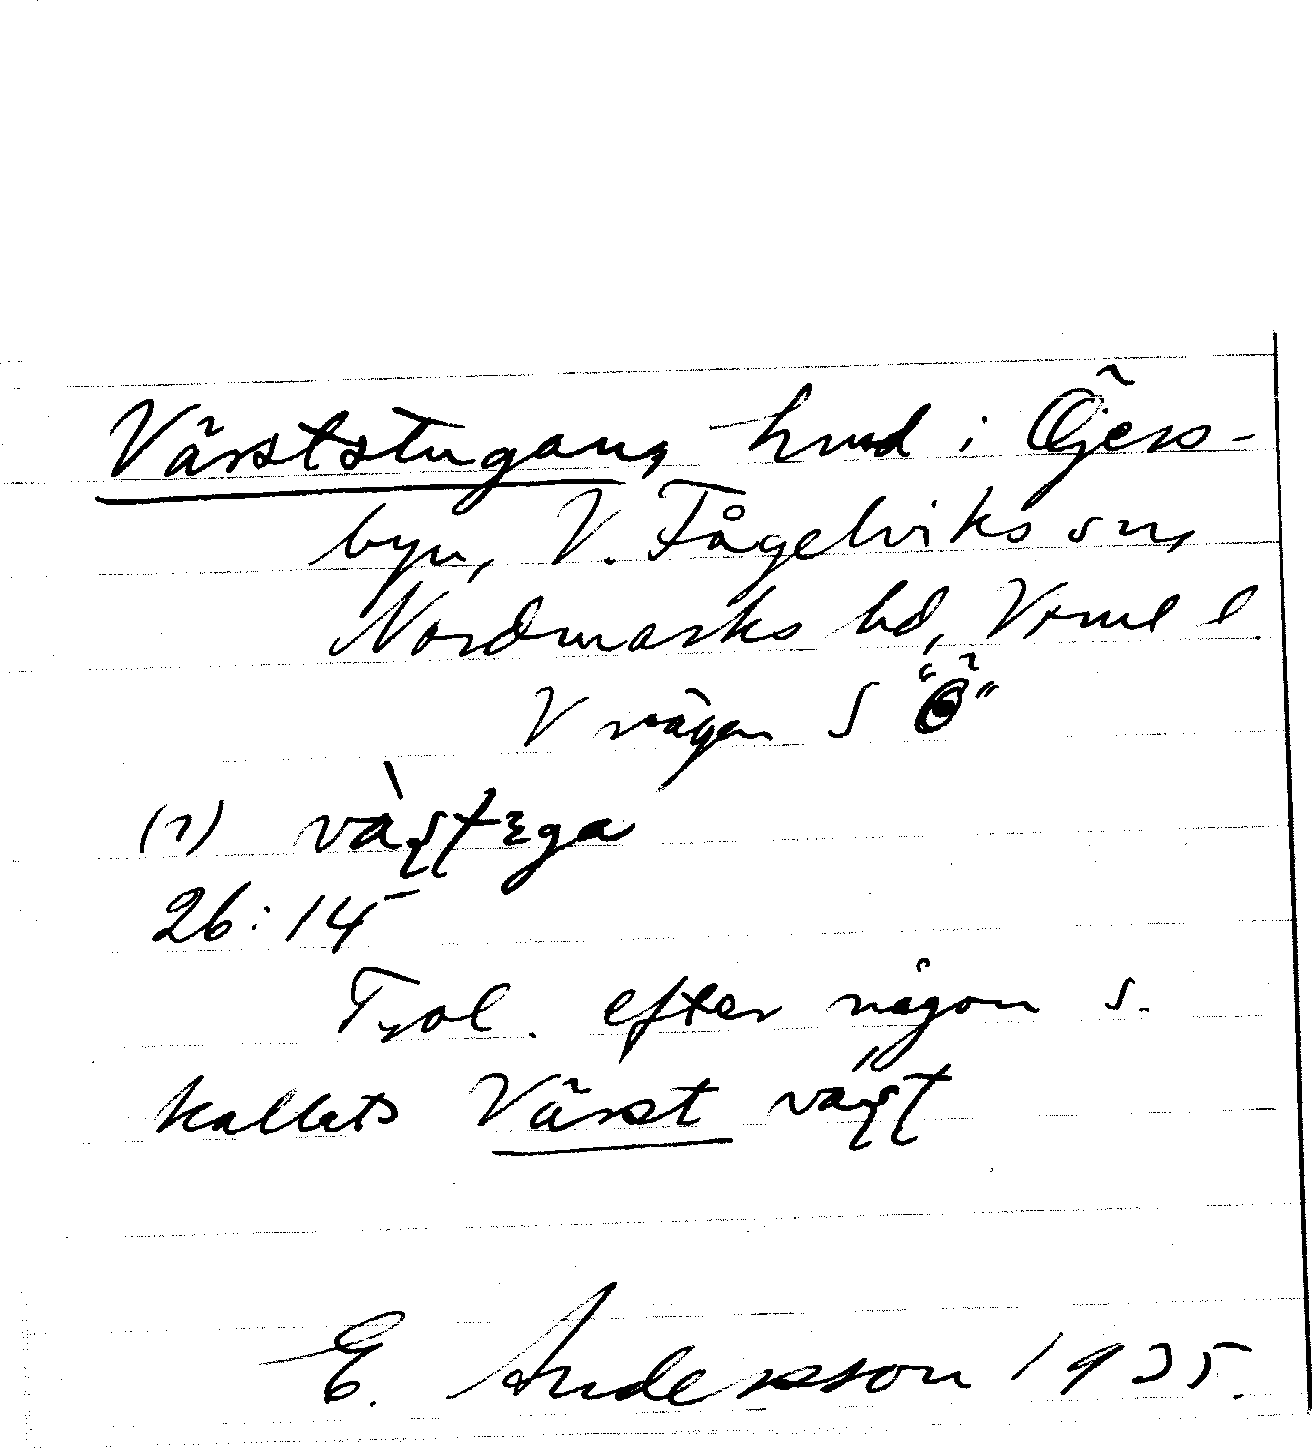 Värststugan, hmd i Öjers-
byn, V. Fågelviks sn,
Nordmarks hd, Vrml l.
V vägen S "Ö"
(1)
26:14
Trol. efter någon s.
kallats Värst
E. Andersson 1935.